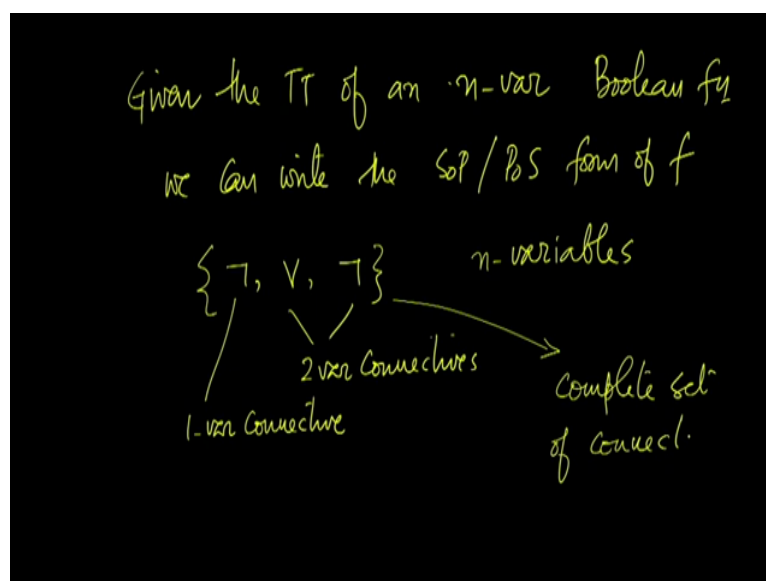 Given the TT of an n-var Boolean fn
we can write the SoP/PoS form of f
n-variables
{¬, ∨, ¬}
2 var connectives
1-var connective
complete set
of connect.